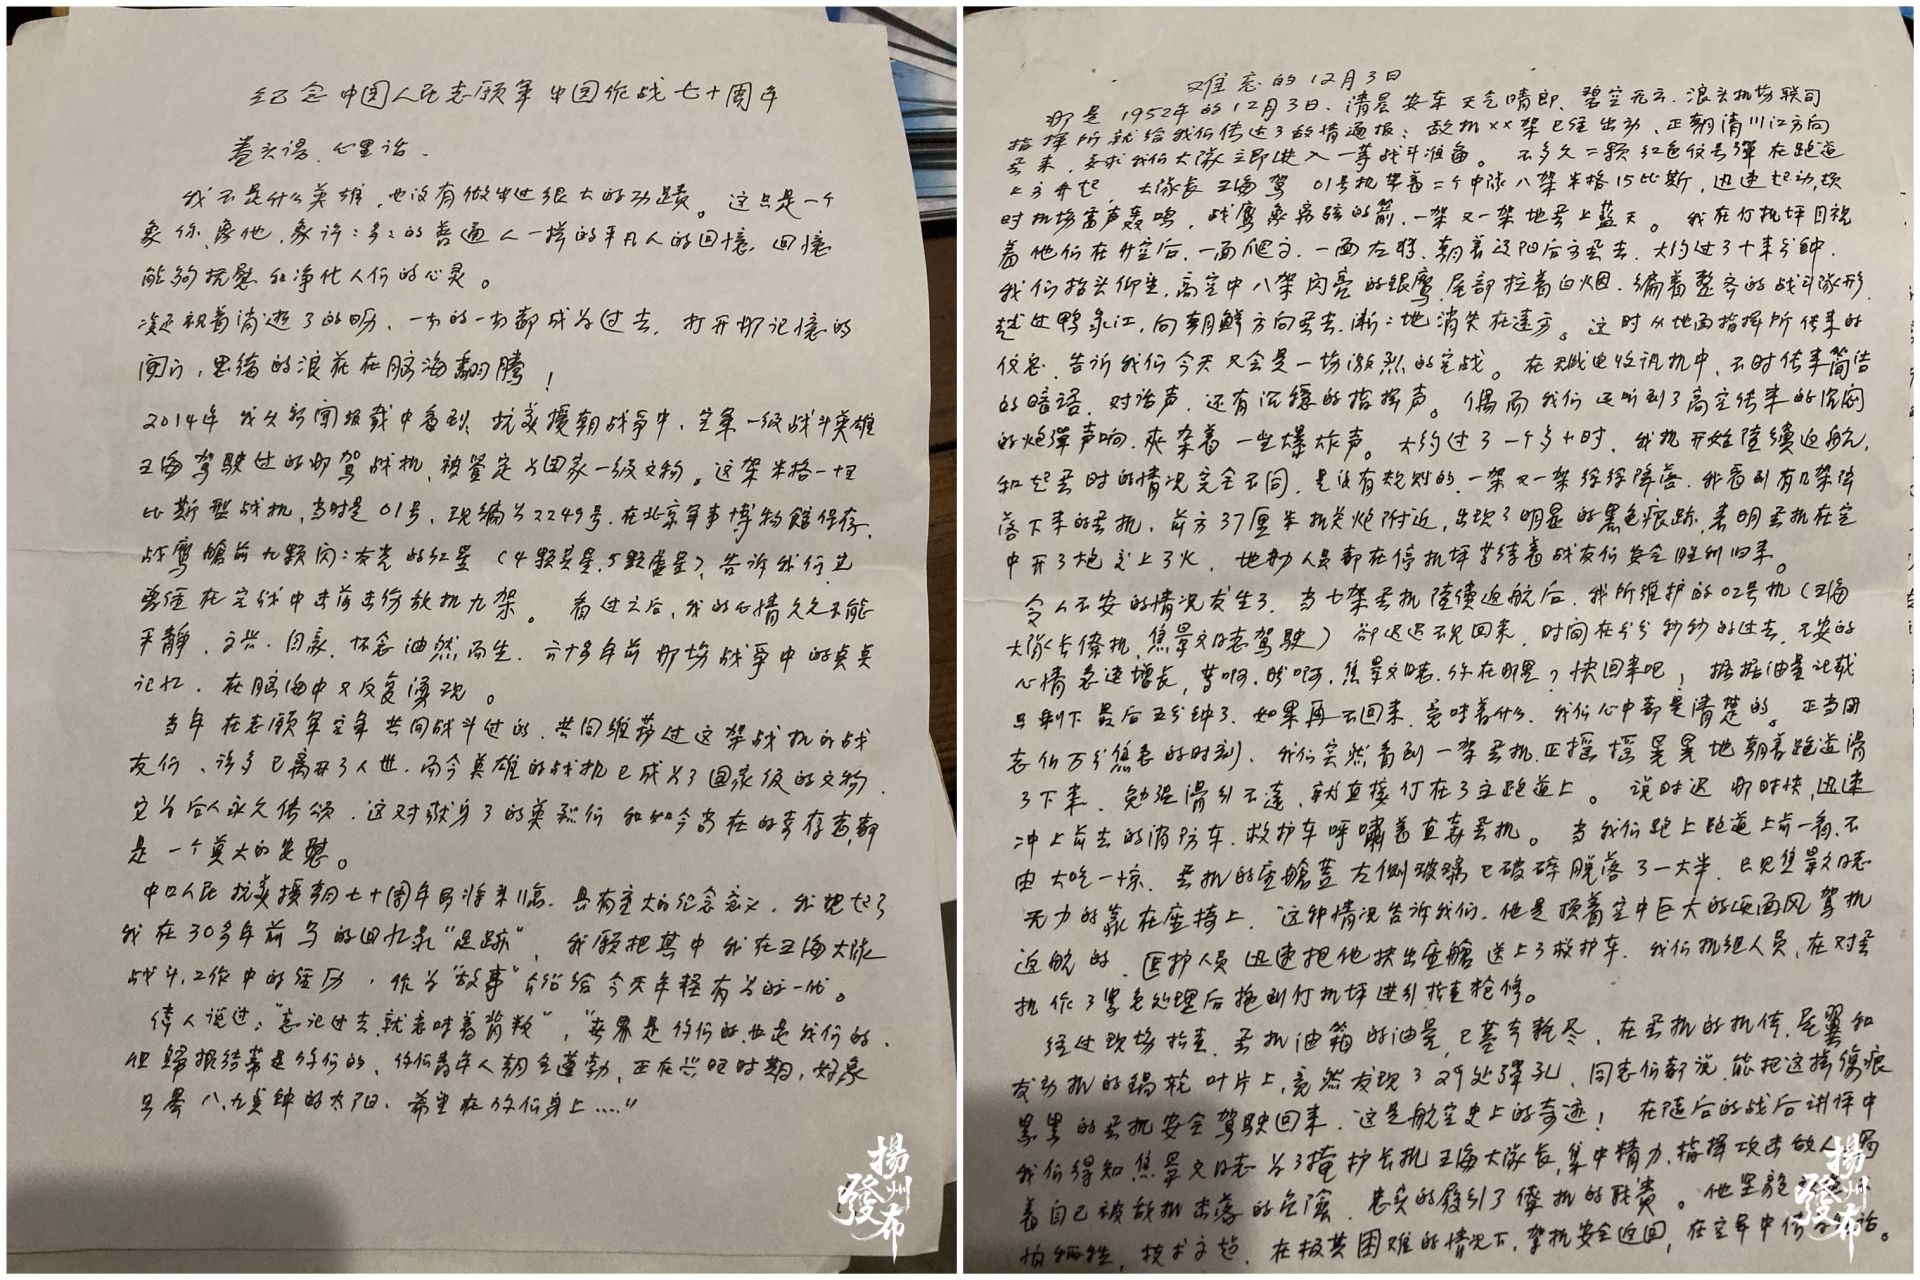 纪念中国人民志愿军出国作战七十周年
卷头语、心里话.
我不是什么英雄,也没有做出过很大的功蹟。这只是一个
象你、象他、象许:多:的普通人一样的平凡人的回憶.回憶
能够抚慰和净化人们的心灵。
凝视着消逝了的昨,一切的一切都成为过去.打开那记憶的
闸门,思绪的浪花在脑海翻腾!
2014年我从新闻报载中看到、抗美援朝战争中.空军一级战斗英雄
王海驾驶过的那驾战机、被鉴定为国家一级文物。这架米格一15
比斯型战机,当时是01号、现编为2249号.在北京军事博物館保存.
战鹰艙前九颗闪:发光的红星(4颗实星.5颗虚星)、告诉我们它
曾经在空战中击落击伤敌机九架。看过之后,我的心情久久不能
平静.高兴.自豪.怀念油然而生.六十多年前那场战争中的真实
记忆.在脑海中又反复涌现。
当年在志愿军空军共同战斗过的.共同维护过这架战机的战
友们、许多已离开了人世.而今英雄的战机已成为了国家级的文物.
它为后人永久传颂.这对献身了的英烈们和如今尚在的幸存者,都
是一个莫大的安慰。
中国人民抗美援朝七十周年即将来临.具有重大的纪念意义.我想起了
我在30多年前写的回忆录"足跡"、我愿把其中我在王海大队
战斗,工作中的经历,作为"故事"介绍给今天年轻有为的一代。
伟人说过:"忘记过去.就意味着背叛","世界是你们的.也是我们的、
但归根结蒂是你们的、你们青年人朝气蓬勃、正在兴旺时期,好象
早晨八、九点钟的太阳、希望在你们身上...."
揚州發布
难忘的12月3日
那是1952年的12月3日、清晨安东天气晴朗、碧空无云.浪头机场联司
指挥所就给我们传达了敌情通报:敌机××架已经出动、正朝清川江方向
飞来.要求我们大队立即进入一等战斗准备。不多久二颗红色信号彈在跑道
上方升起.大队長王海驾01号机带着二个中队八架米格15比斯,迅速起动,顿
时机场雷声轰鸣,战鹰象离弦的箭,一架又一架地飞上蓝天。我在停机坪目视
着他们在升空后.一面爬高.一面左转.朝着辽阳后方飞去.大约过了十来分钟.
我们抬头仰望,高空中八架闪亮的银鹰.尾部拉着白烟.编着整齐的战斗队形
越过鸭录江,向朝鲜方向飞去.渐:地消失在远方。这时从地面指挥所传来的
信息.告诉我们今天又会是一场激烈的空战。在无线电收讯机中.不时传来简洁
的暗语.对话声.还有沉缓的指挥声。偶而我们还听到了高空传来的沉闷
的炮彈声响.夹杂着一些爆炸声。大约过了一个多小时.我机开始陸續返航.
和起飞时的情况完全不同.是没有规则的.一架又一架徐徐降落.我看到有几架降
落下来的飞机.前方37厘米机关炮附近,出现了明显的黑色痕跡.表明飞机在空
中开了炮交上了火.地勤人员都在停机坪等待着战友们安全胜利归来。
令人不安的情况发生了.当七架飞机陸續返航后.我所维护的02号机(王海
大队长僚机.焦景文同志驾驶)却迟迟不见回来.时间在分分秒秒的过去.不安的
心情急速增长,等啊.盼啊.焦景文同志.你在哪里?快回来吧!据据油量记载
只剩下最后五分钟了.如果再不回来.意味着什么.我们心中都是清楚的。正当同
志们万分焦急的时刻、我们突然看到一架飞机.正摇摇晃晃地朝着跑道滑
了下来、勉强滑行不远、就直接停在了主跑道上。说时迟那时快.迅速
冲上前去的消防车.救护车呼啸着直奔飞机。当我们跑上跑道上前一看.不
由大吃一惊.飞机的座艙蓋左侧玻璃已破碎脱落了一大半.只见焦景文同志
无力的靠在座椅上.这种情况告诉我们.他是顶着空中巨大的迎面风驾机
返航的.医护人员迅速把他扶出座艙送上了救护车.我们机组人员.在对飞
机作了紧急处理后拖到停机坪进行检查抢修。
经过现场检查.飞机油箱的油量,已基本耗尽.在飞机的机体.尾翼和
发动机的锅轮叶片上,竟然发现了29处彈孔、同志们都说.能把这样傷痕
累累的飞机安全驾驶回来.这是航空史上的奇迹!在随后的战后讲评中
我们得知焦景文同志为了掩护长机王海大队長,集中精力.指挥攻击敌人.
着自己被敌机击落的危險.忠实的履行了僚机的職責。他坚毅
怕牺牲.技术高超.在极其困难的情况下.驾机安全返回,在空军中传为
揚州發布